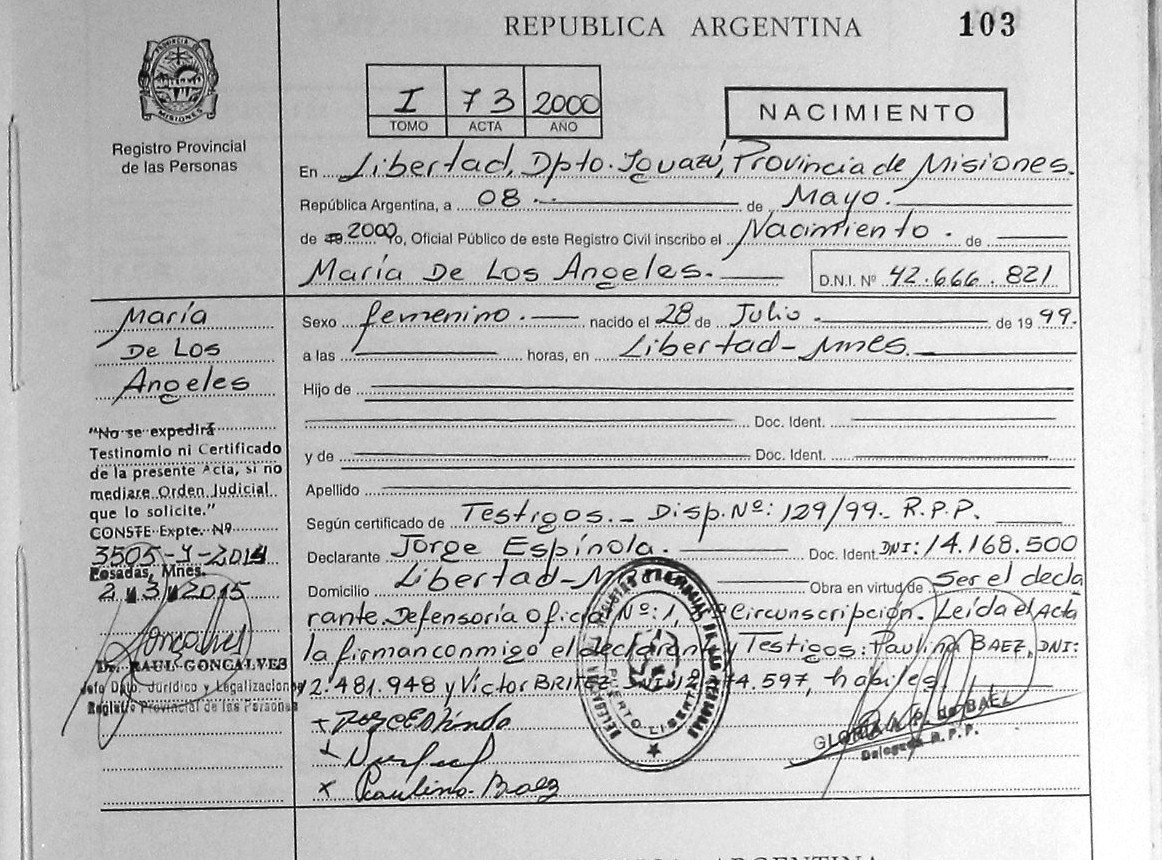 REPUBLICA ARGENTINA
103
PROVINCIA DE MISIONES
Registro Provincial
de las Personas
I 73 2000
TOMO ACTA AÑO
NACIMIENTO
En Libertad, Dpto. Iguazú, Provincia de Misiones.
República Argentina, a 08 de Mayo.
de 2000 Yo, Oficial Público de este Registro Civil inscribo el Nacimiento. de
María De Los Angeles. D.N.I. Nº 42.666.821
María
De Los
Angeles
"No se expedirá
Testimonio ni Certificado
de la presente Acta, si no
mediare Orden Judicial
que lo solicite."
CONSTE Expte. Nº
3505-Y-2014
Posadas, Mnes.
2 3 2015
Dr. RAUL GONCALVES
Jefe Dpto. Jurídico y Legalizaciones
Registro Provincial de las Personas
Sexo femenino. nacido el 28 de Julio. de 1999.
a las horas, en Libertad-Mnes.
Hijo de
Doc. Ident.
y de Doc. Ident.
Apellido
Según certificado de Testigos._ Disp. Nº: 129/99_ R.P.P.
Declarante Jorge Espínola. Doc. Ident. DNI: 14.168.500
Domicilio Libertad- Obra en virtud de Ser el decla
rante. Defensoría Oficial Nº: 1, Circunscripción. Leída el Acta
la firman conmigo el declarante y Testigos: Paulina BAEZ, DNI:
2.481.948 y Víctor 74.597, hábiles.
PUERTO LIBERTAD
GLORIA P. de BAEZ
Delegada R.P.P.
x Paulina Baez
REPUBLICA ARGENTINA